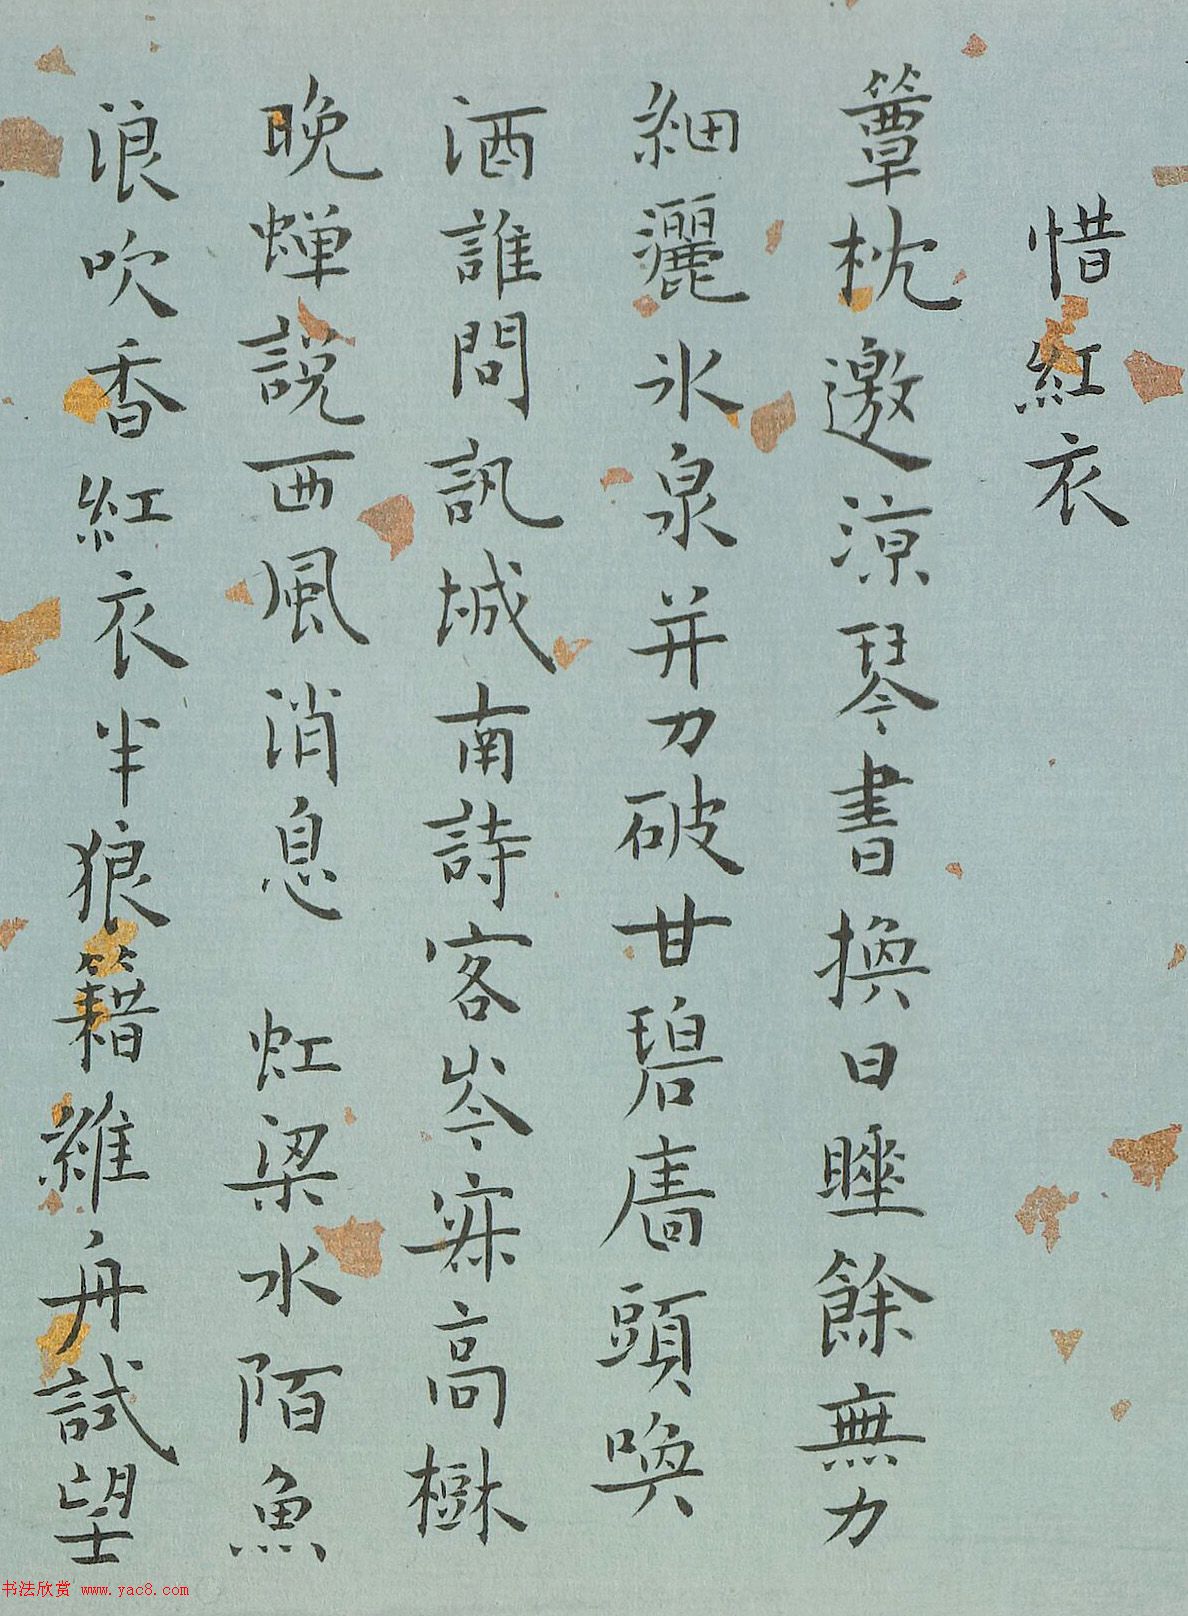 惜紅衣
簟枕邀涼琴書換日睡餘無力
細灑冰泉并刀破甘碧墻頭喚
酒誰問訊城南詩客岑寂高樹
晚蟬說西風消息 虹梁水陌魚
浪吹香紅衣半狼籍維舟試望
书法欣赏 www.yac8.com